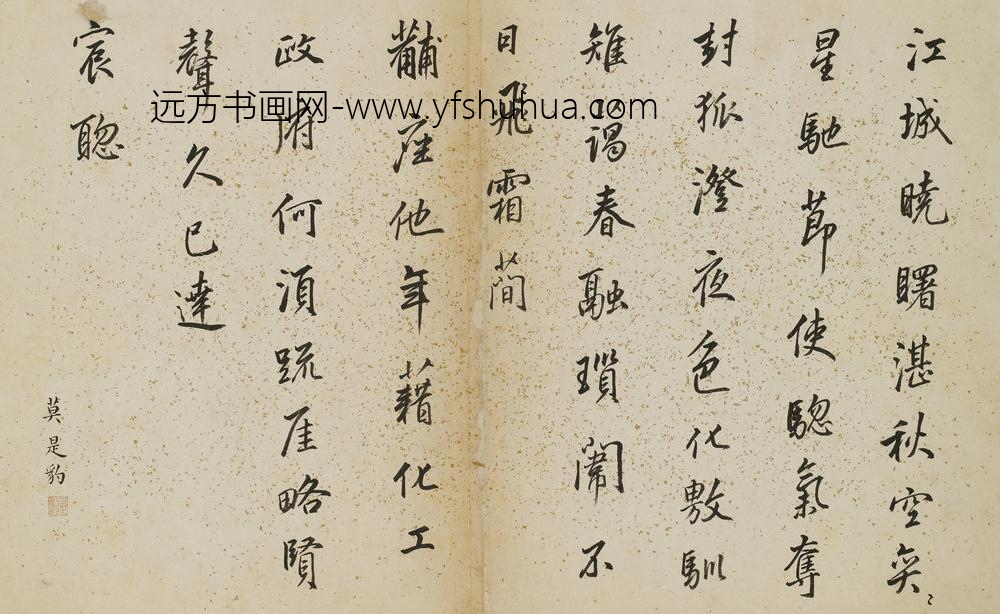 江城曉曙湛秋空奕〻
星馳節使驄氣奪
封狐澄夜色化敷馴
雉藹春融瑣闈不
日飛霜簡
黼座他年藉化工
政府何須疏厓略賢
聲久已達
宸聰
莫是豹
远方书画网-www.yfshuhua.com